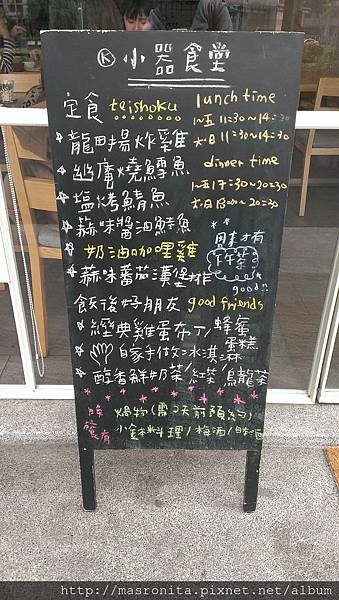 Ⓚ 小器食堂
定食 taishoku
lunch time
一~五 11:30~14:30
六.日 11:30~14:30
dinner time
一~五 17:30~20:30
六.日 18:00~20:30
龍田揚炸雞
幽庵燒鱈魚
塩烤鯖魚
蒜味醬油鮮魚
奶油咖哩雞
蒜味番茄漢堡排
周末才有
下午茶
good!!
飯後好朋友 good friends
經典雞蛋布丁/蜂蜜蛋糕
自家手做冰淇淋
醇香鮮奶茶/紅茶/烏龍茶
晚餐有
鍋物(需2天前預約)
小缽料理/梅酒/啤酒
http://masronita.pixnet.net/album